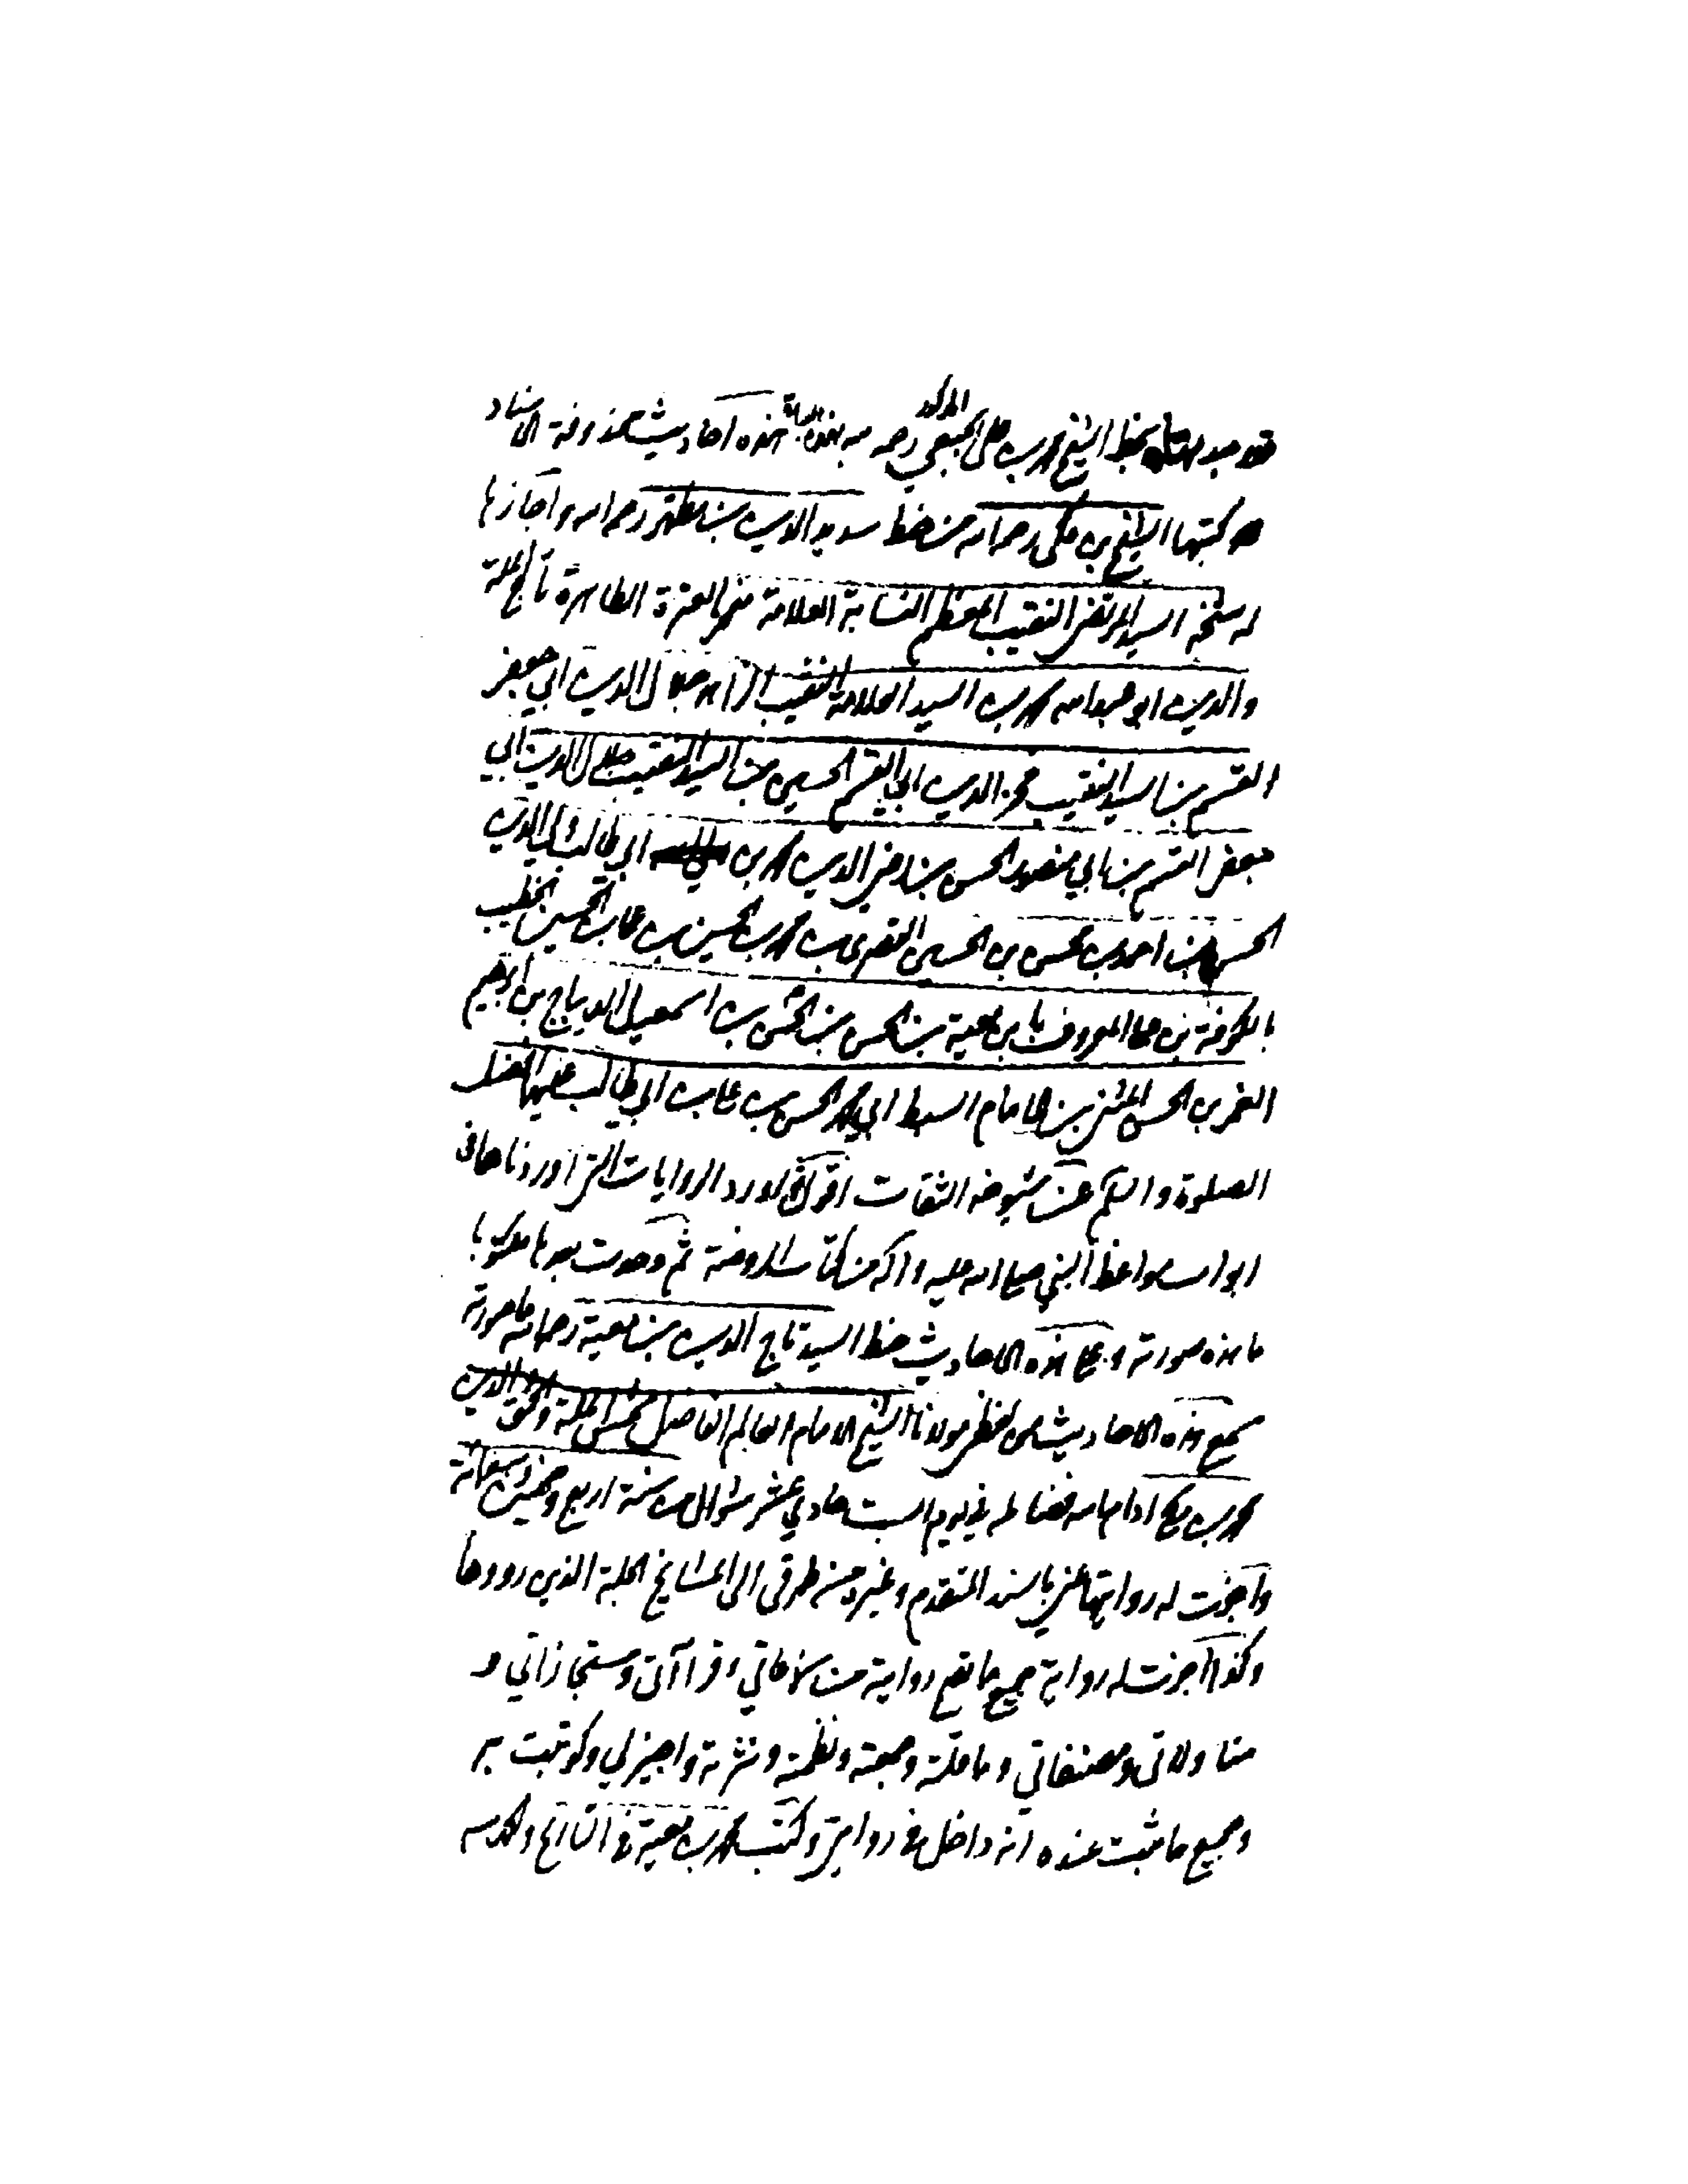 قد وجد بخط الشيخ محمد بن علي الجبعي المذكور رحمه الله بهذه هذه احاديث محذوفة الاسناد
كتبها الشيخ بن مكي رحمه الله من خط سديد الدين بن مطهر رحمه الله واجازها
له شيخه السيد المرتضى النقيب المعظم النسابة العلامة فخر العترة الطاهرة تاج الملة
والدين ابو عبد الله محمد بن السيد العلامة النقيب الزاهد جلال الدين ابي جعفر
القسم بن السيد النقيب فخر الدين ابي القسم الحسين بن السيد النقيب جلال الدين ابي
جعفر القسم بن ابي منصور الحسن بن رضي الدين محمد بن ابي طالب ولي الدين
الحسن بن احمد بن محسن بن الحسين القصري بن محمد بن الحسين بن علي بن الحسين الخطيب
بالكوفة بن علي المعروف بابن معية بن الحسن بن الحسن بن اسمعيل الديباج بن ابرهيم
الغمر بن الحسن المثنى بن الامام السبط ابي محمد الحسن بن علي بن ابي طالب عليهما افضل
الصلوة والسلم عن شيوخه الثقات اقول الروايات التي اوردناها في
ابواب مواعظ النبي صلى الله عليه واله من كتاب الروضة ثم وجدت بعدها مكتوبا
ما هذه صورته وعلى هذه الاحاديث خط السيد تاج الدين بن معية رحمه الله ما صورته
سمع هذه الاحاديث من لفظي مولانا الشيخ الامام العالم الفاضل شمس الملة والحق والدين
محمد بن مكي ادام الله فضائله في يوم السبت حادي عشر شوال من سنة اربع وخمسين وسبعمائة
واجزت له روايتها عني بالسند المتقدم وغيره من طرقي الى المشايخ الجلة الذين رووها
وكذا اجزت له رواية جميع ما تصح روايته من سماعاتي وقراآتي ومستجازاتي و
مناولاتي ومصنفاتي وما قلته وجمعته ونظمته ونثرته واجيز لي وكوتبت به
وجميع ما ثبت عنده انه داخل في روايتي وكتب محمد بن معية في التاريخ والحمد لله